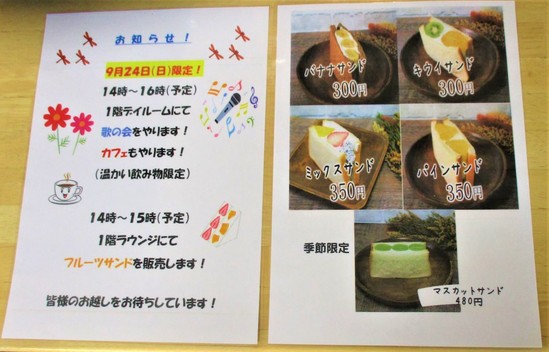 お知らせ!
9月24日(日)限定!
14時~16時(予定)
1階デイルームにて
歌の会をやります!
カフェもやります!
(温かい飲み物限定)
14時~15時(予定)
1階ラウンジにて
フルーツサンドを販売します!
皆様のお越しをお待ちしています!
バナナサンド
300円
キウイサンド
300円
ミックスサンド
350円
パインサンド
350円
季節限定
マスカットサンド
480円